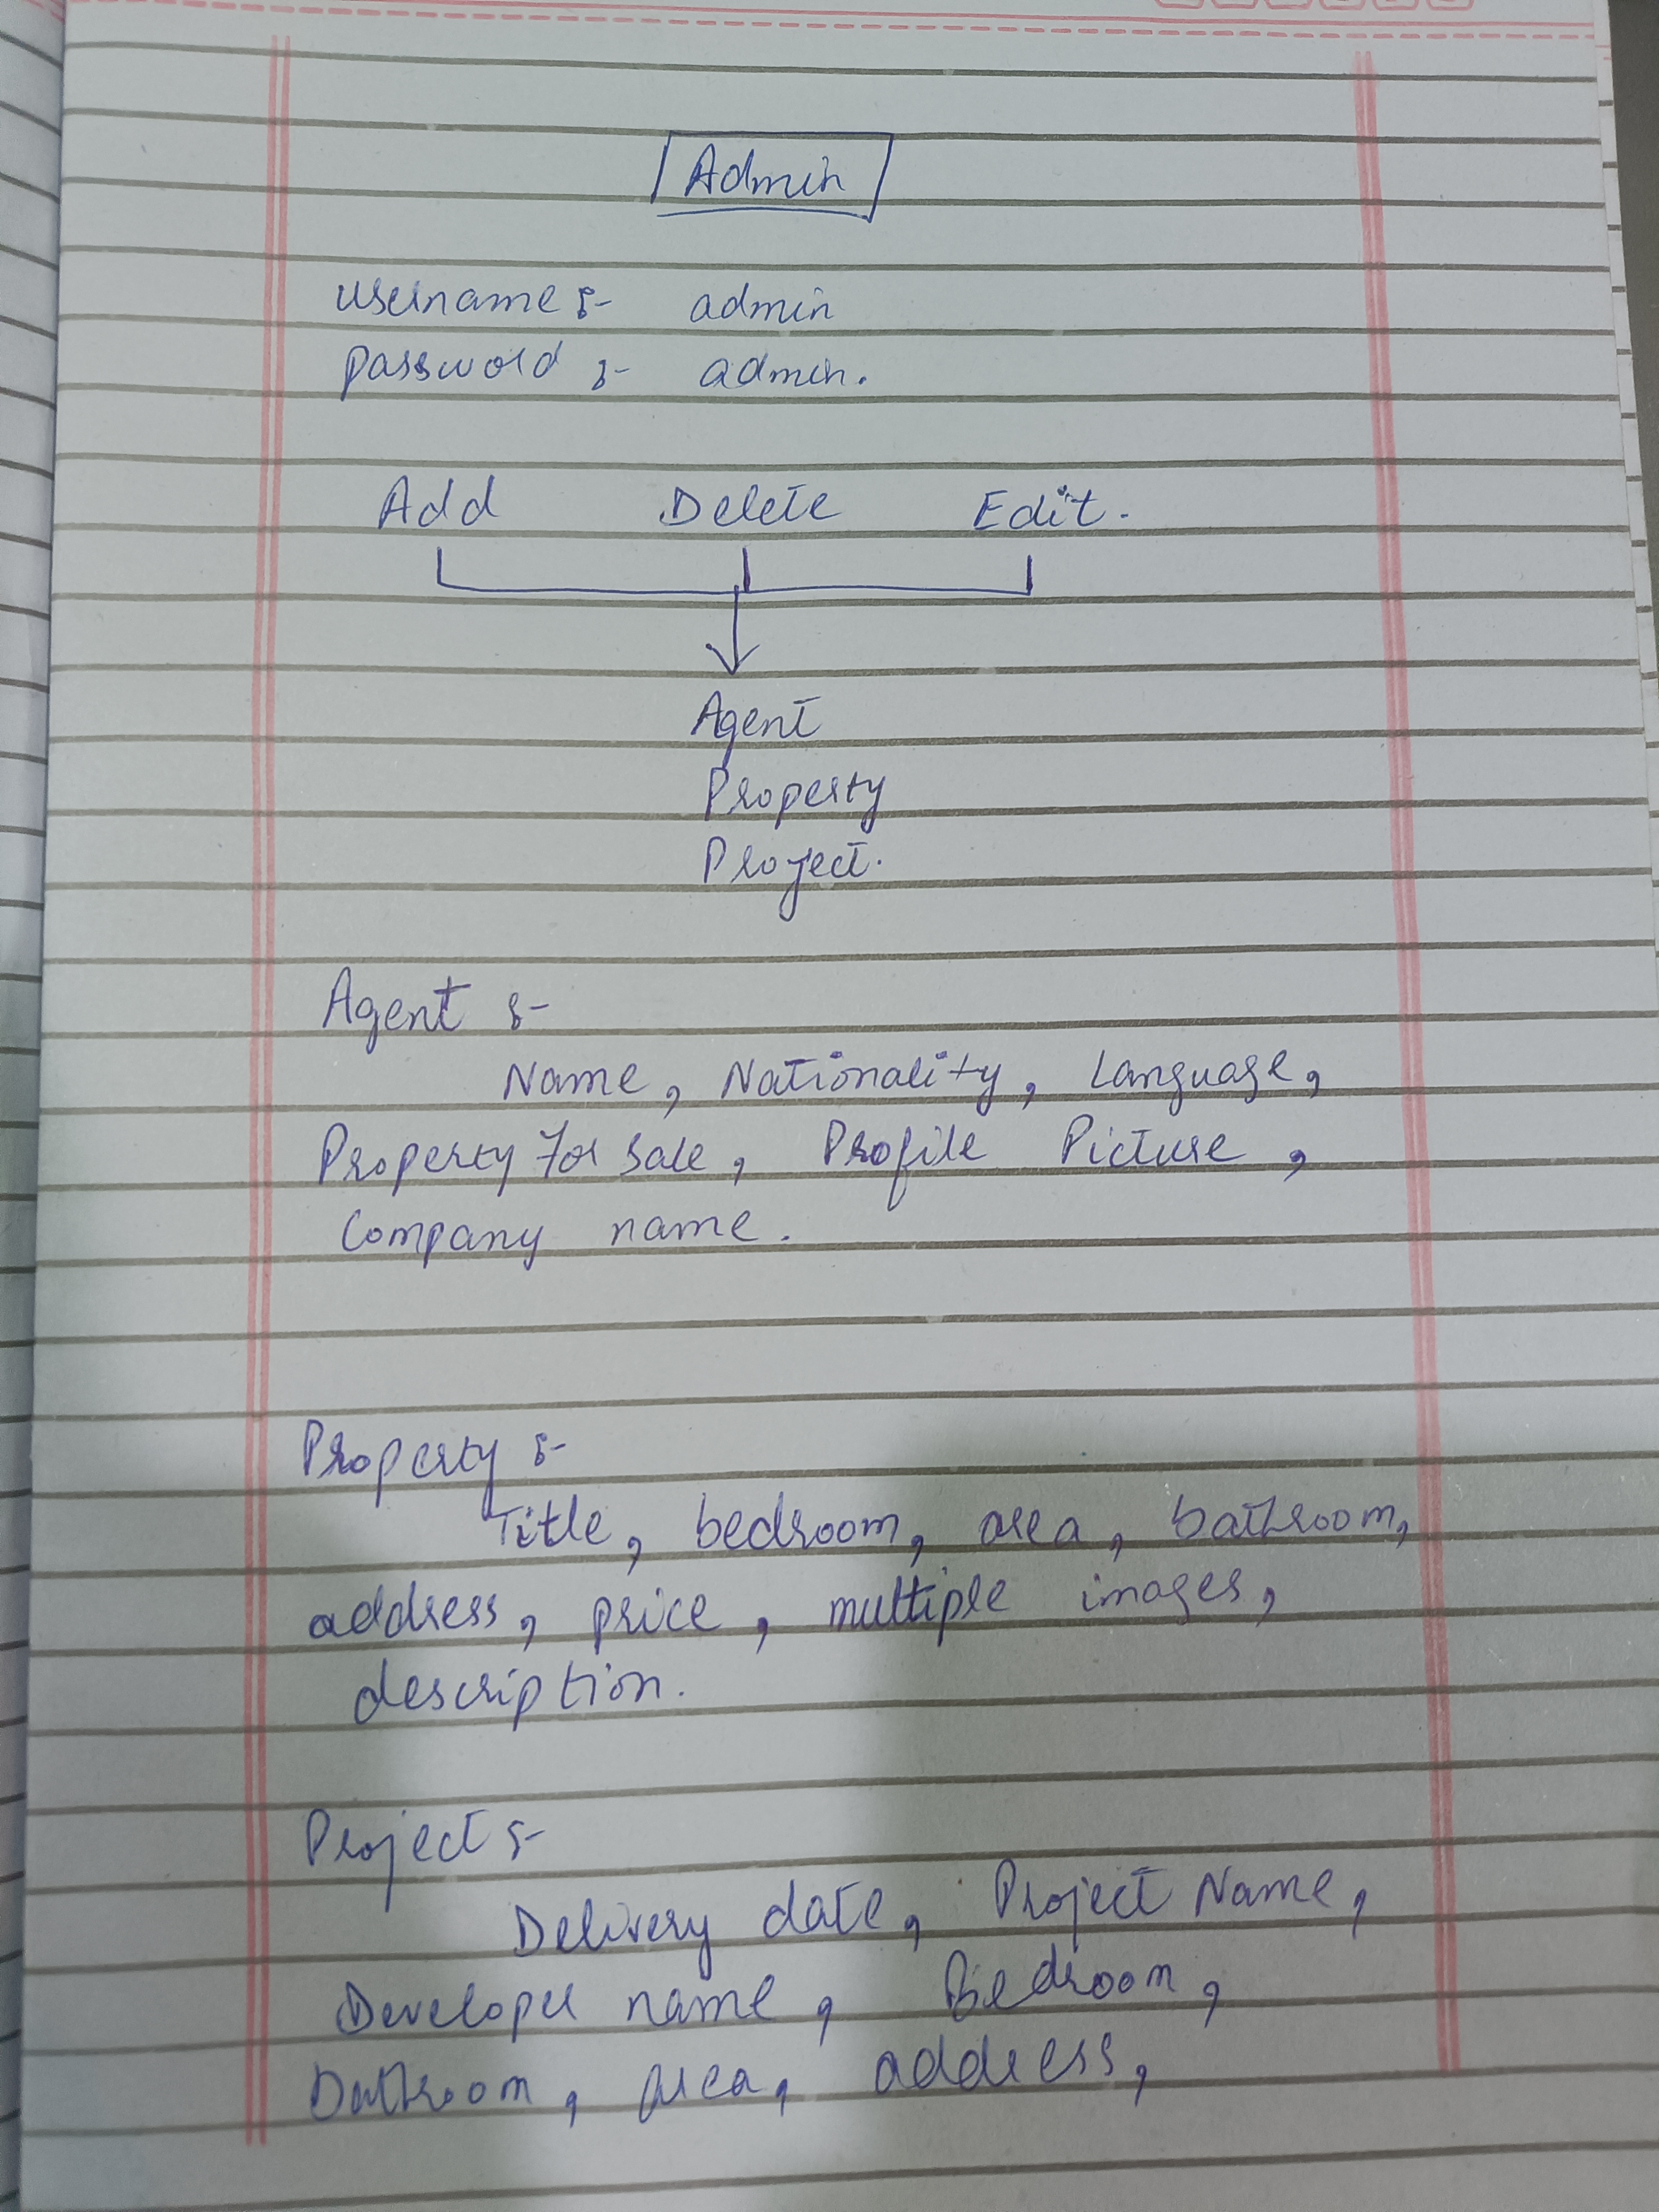 Admin
username :- admin
password :- admin.
Add Delete Edit.
Agent
Property
Project.
Agent :-
Name, Nationality, Language,
Property for sale, Profile Picture,
Company name.
Property :-
Title, bedroom, area, bathroom,
address, price, multiple images,
description.
Project :-
Delivery date, Project Name,
Developer name, Bedroom,
Bathroom, area, address,